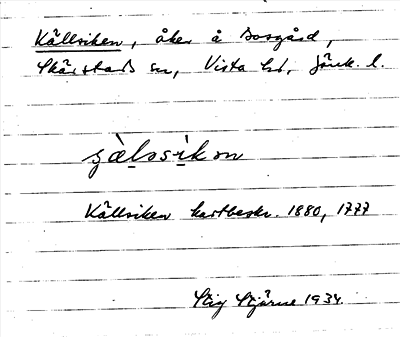 Källviken, åker å Bosgård,
Skärstads sn, Vista hd, Jönk. l.
Källviken kartbeskr. 1880, 1777
Stig Stjärne 1934.